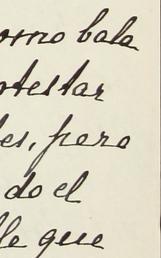 omo bala
ntestar
les, pero
do el
lle que